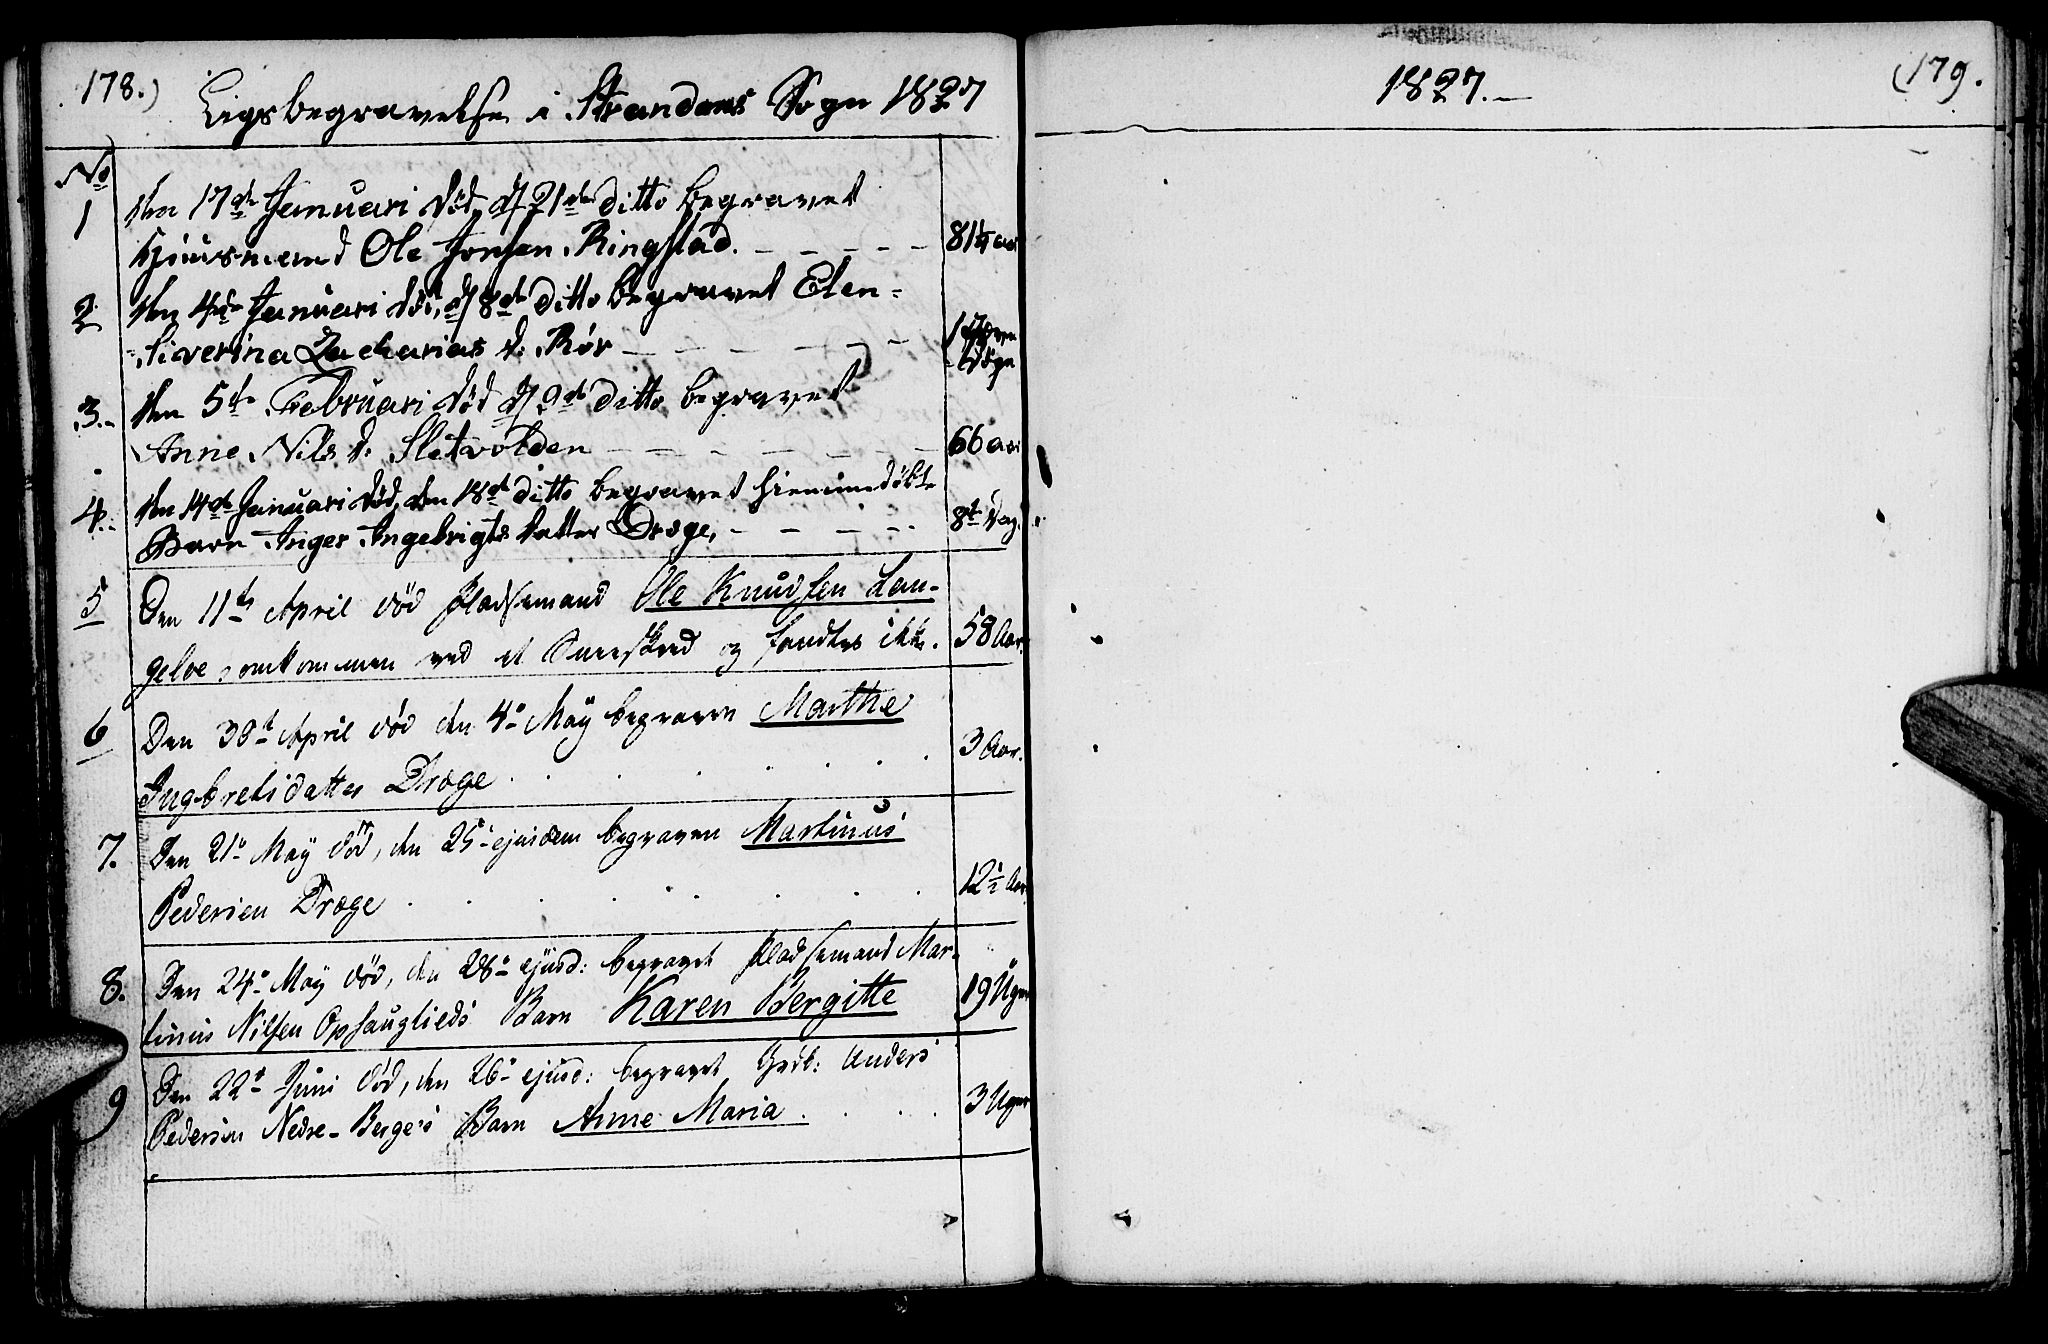 178.)
Ligsbegravelse i Strandens Sogn 1827
No
1 den 17de Januari död, d 21de ditto begravet
Huusmand Ole Jonsen Ringstad. 81 1/4 aar
2 den 4de Januari död, d 8de ditto begravet Elen-
Siverina Zacharias d. Rör 17
3. den 5te Februari död d 9de ditto begravet
Anne Nils d. Sletvolden 66 aar
4. den 14de Januari död, den 18de ditto begravet hiemmedöbte
Barn Inger Ingebrigts datter Dræge, 8te Dag.
5 Den 11te April död Pladsemand Ole Knudsen Lan-
gelve, omkommen ved et Sneeskred og fandtes ikke. 58 Aar.
6 Den 30te April död den 4de May begraven Marthe
Ingebretsdatter Dræge 3 Aar.
7. Den 21de May död, den 25de ejusdem begraven Martinus
Pedersen Dræge 12 1/2 Aar
8. Den 24de May död, den 28de ejusd: begravet Pladsemand Mar-
tinus Nilsen Ophauglieds Barn Karen Bergitte 19 Uger
9 Den 22de Juni död, den 26de ejusd: begravet Grdb: Anders
Pedersen Nedre-Berge's Barn Anne Maria. 3 Uger
1827.
(179.